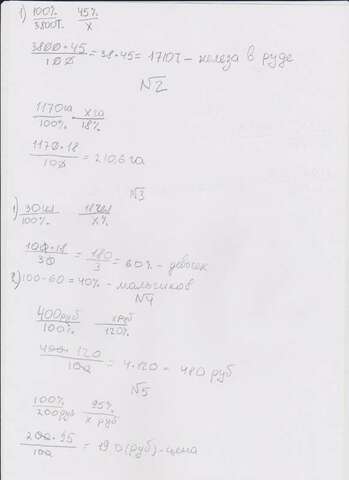 1) 100% 45%
3800т. x
3800 • 45 / 100 = 38 • 45 = 1710т – железа в руде
№2
1170га x га
100% 18%
1170 • 18 / 100 = 210,6 га
№3
1) 30чел 18чел
100% x%
100 • 18 / 30 = 180 / 3 = 60% – девочек
2) 100 - 60 = 40% – мальчиков
№4
400руб x руб
100% 120%
400 • 120 / 100 = 4 • 120 = 480 руб
№5
100% 95%
200руб x руб
200 • 95 / 100 = 190 (руб) – цена